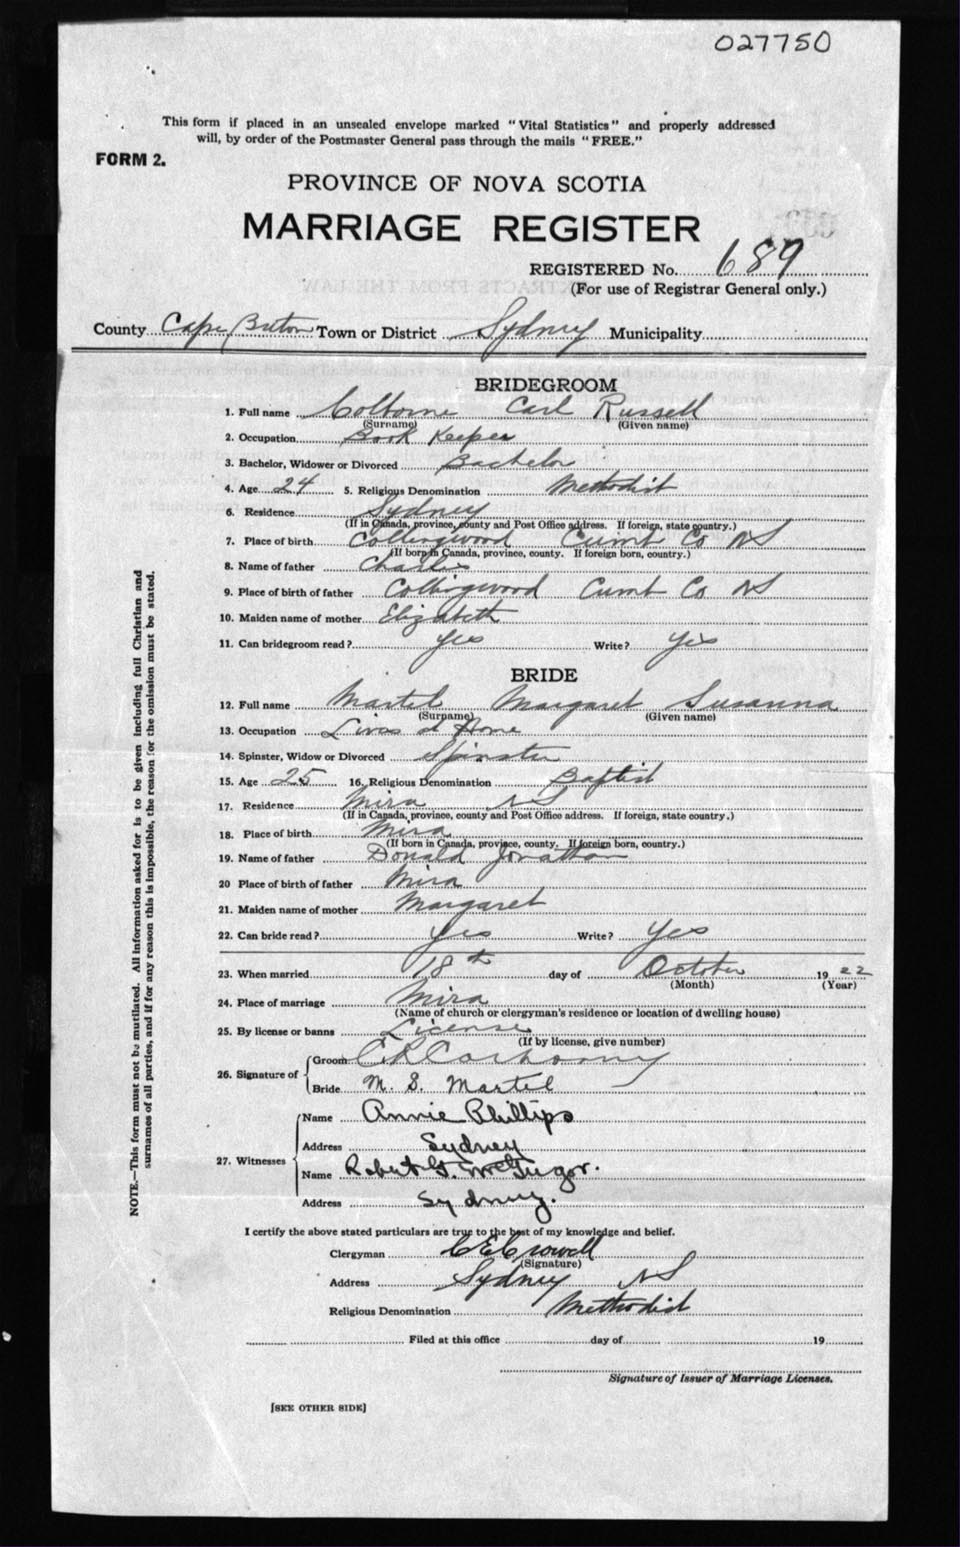 027750
This form if placed in an unsealed envelope marked "Vital Statistics" and properly addressed
will, by order of the Postmaster General pass through the mails "FREE."
FORM 2.
PROVINCE OF NOVA SCOTIA
MARRIAGE REGISTER
REGISTERED No. 689
(For use of Registrar General only.)
County Cape Breton Town or District Sydney Municipality
BRIDEGROOM
1. Full name Colborne Carl Russell
(Surname) (Given name)
2. Occupation Book Keeper
3. Bachelor, Widower or Divorced Bachelor
4. Age 24 5. Religious Denomination Methodist
6. Residence Sydney
(If in Canada, province, county and Post Office address. If foreign, state country.)
7. Place of birth Collingwood Cumb Co NS
(If born in Canada, province, county. If foreign born, country.)
8. Name of father Charles
9. Place of birth of father Collingwood Cumb Co NS
10. Maiden name of mother Elizabeth
11. Can bridegroom read? Yes Write? Yes
BRIDE
12. Full name Martel Margaret Susanna
(Surname) (Given name)
13. Occupation Lives at Home
14. Spinster, Widow or Divorced Spinster
15. Age 25 16. Religious Denomination Baptist
17. Residence Mira NS
(If in Canada, province, county and Post Office address. If foreign, state country.)
18. Place of birth Mira
(If born in Canada, province, county. If foreign born, country.)
19. Name of father Donald Jonathan
20 Place of birth of father Mira
21. Maiden name of mother Margaret
22. Can bride read? Yes Write? Yes
23. When married 18th day of October 1922
(Month) (Year)
24. Place of marriage Mira
(Name of church or clergyman's residence or location of dwelling house)
25. By license or banns License
(If by license, give number)
26. Signature of
Groom C R
Bride M. S. Martel
27. Witnesses
Name Annie Phillips
Address Sydney
Name Robert G. McGregor.
Address Sydney.
I certify the above stated particulars are true to the best of my knowledge and belief.
Clergyman C E Crowell
(Signature)
Address Sydney NS
Religious Denomination Methodist
Filed at this office day of 19
Signature of Issuer of Marriage Licenses.
[SEE OTHER SIDE]
NOTE.—This form must not be mutilated. All information asked for is to be given including full Christian and
surnames of all parties, and if for any reason this is impossible, the reason for the omission must be stated.